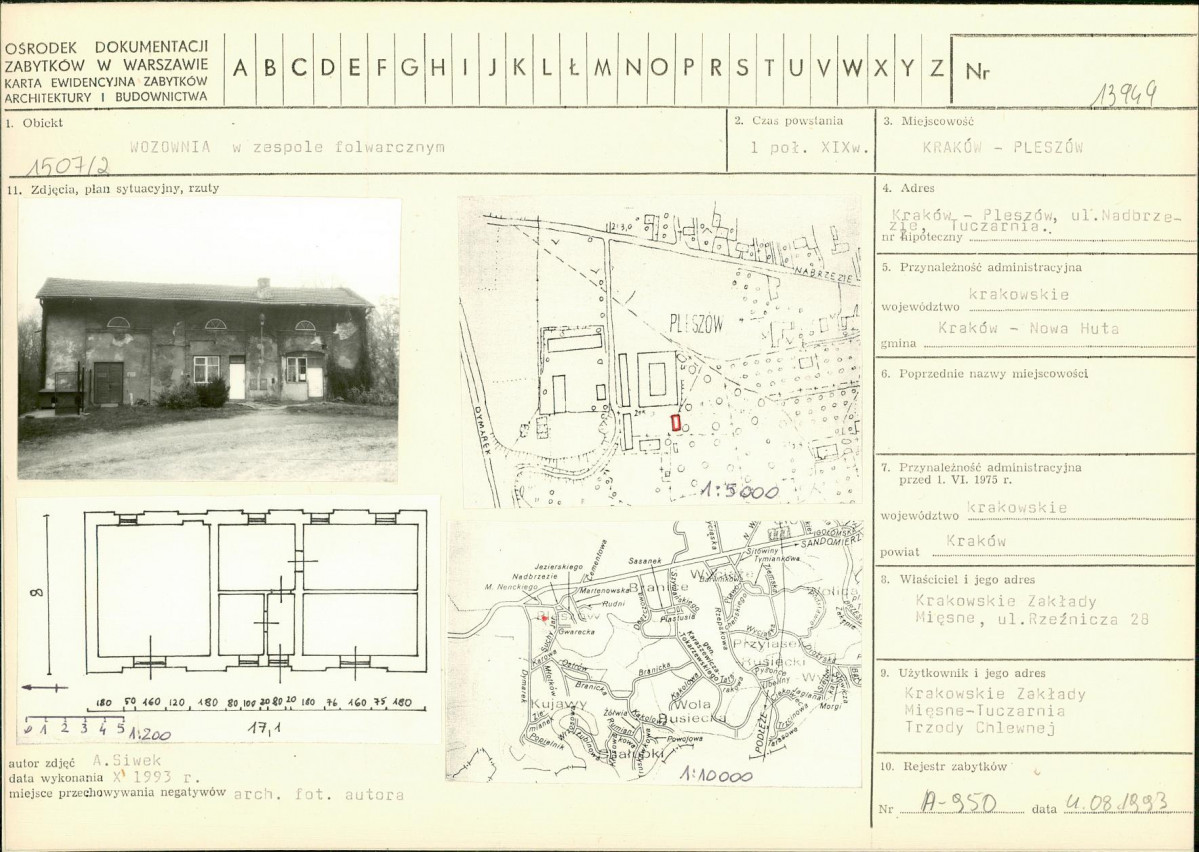 OŚRODEK DOKUMENTACJI
ZABYTKÓW W WARSZAWIE
KARTA EWIDENCYJNA ZABYTKÓW
ARCHITEKTURY I BUDOWNICTWA
A B C D E F G H I J K L Ł M N O P R S T U V W X Y Z
Nr
13949
1. Obiekt
WOZOWNIA w zespole folwarcznym
1507/2
2. Czas powstania
1 poł. XIXw.
3. Miejscowość
KRAKÓW - PLESZÓW
11. Zdjęcia, plan sytuacyjny, rzuty
4. Adres
Kraków - Pleszów, ul.Nadbrze-
zie, Tuczarnia.
nr hipoteczny
5. Przynależność administracyjna
województwo krakowskie
Kraków - Nowa Huta
gmina
6. Poprzednie nazwy miejscowości
7. Przynależność administracyjna
przed 1. VI. 1975 r.
województwo krakowskie
powiat Kraków
8. Właściciel i jego adres
Krakowskie Zakłady
Mięsne, ul.Rzeźnicza 28
9. Użytkownik i jego adres
Krakowskie Zakłady
Mięsne-Tuczarnia
Trzody Chlewnej
10. Rejestr zabytków
Nr A-950 data 4.08.1993
NABRZEZIE
PLESZÓW
DYMAREK
1:5000
SANDOMIERZ
Sasanek
Cementowa
Jezierskiego
Nadbrzezie
M. Nenckiego
Martenowska
Rudni
Gwarecka
Suchy Jar
Karowa
Branice
Wyciąże
Szymańskiego
Plastusia
Tymiankowa
Rzepakowa
Przylasek
Rusiecki
Karaszewicza
Tokarzewskiego
Branicka
Branicka
Dymarek
Kujawy
Żółwia
Wola
Rusiecka
Popielnik
Powojowa
PODŁĘŻE
Morgi
1:10000
8
180 50 160 120 180 80 100 20 80 20 180 76 160 75 180
0 1 2 3 4 5
1:200
17,1
autor zdjęć A.Siwek
data wykonania X 1993 r.
miejsce przechowywania negatywów arch. fot. autora